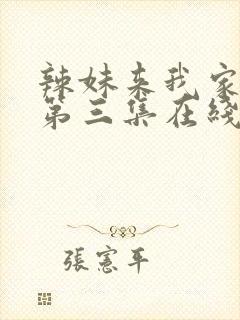 辣妹来我家
第三集在线
張憲平